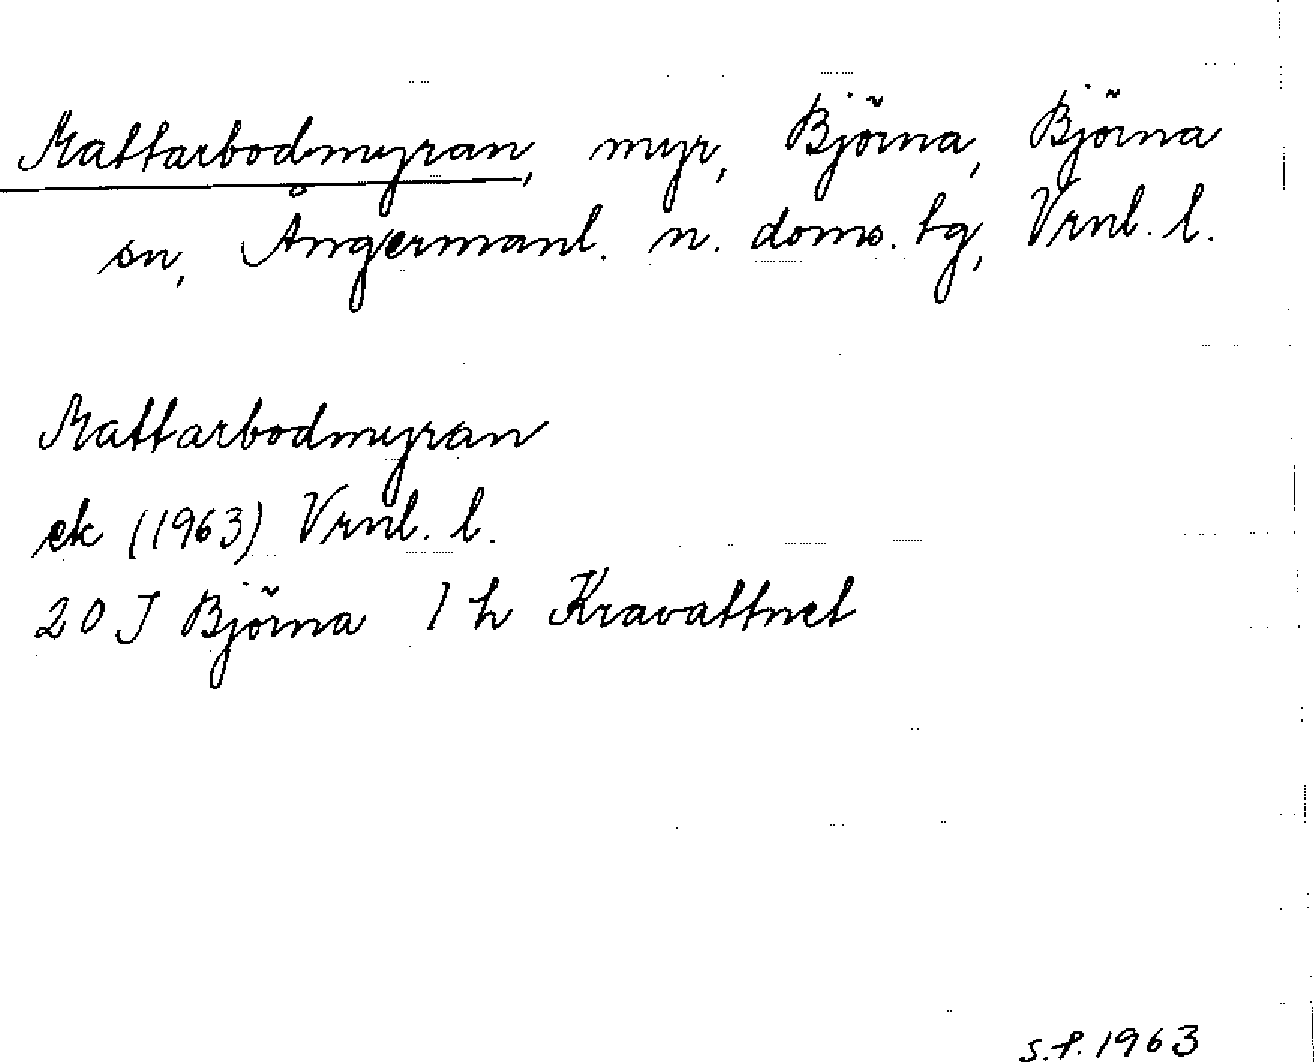 Mattarbodmyran, myr, Björna, Björna
sn, Ångermanl. n. doms. tg, Vrnl. l.
Mattarbodmyran
ek (1963) Vrnl. l.
20 J Björna 1 h Kravattnet
s.f. 1963